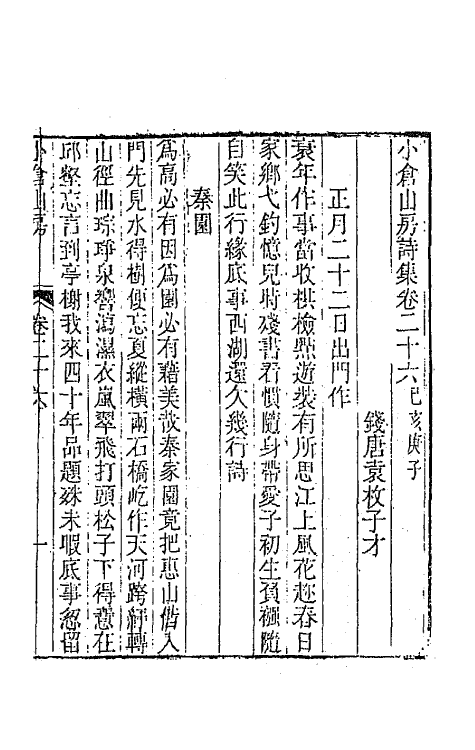 小倉山房詩集卷二十六己亥庚子
錢唐袁枚子才
正月二十二日出門作
衰年作事當收棋檢點遊裝有所思江上風花趁春日
家鄉弋釣憶兒時殘書看慣隨身帶愛子初生負襁隨
自笑此行緣底事西湖還欠幾行詩
秦園
爲高必有因爲園必有藉美哉秦家園竟把惠山借入
門先見水得樹便忘夏縱橫兩石橋屹作天河跨紆轉
山徑曲琮琤泉響瀉濕衣嵐翠飛打頭松子下得意在
邱壑忘言到亭榭我來四十年品題殊未暇底事忽留
小倉山房 卷二十六 一